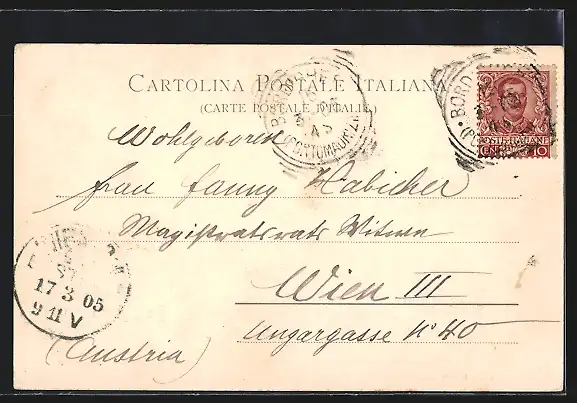 CARTOLINA POSTALE ITALIANA
(CARTE POSTALE D'ITALIE)
BORD
POSTE ITALIANE
10
Wohlgeboren
Frau Fanny Habicher
Magistratsrats Witwe
Wien III
Ungargasse No 40
(Austria)
17 3 05
9 11 V